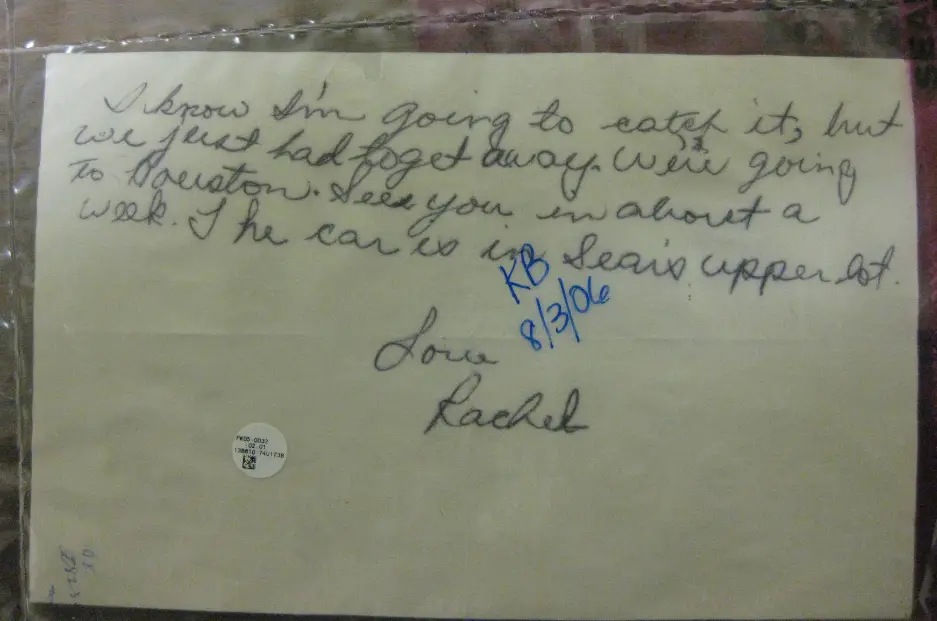 I know I'm going to catch it, but
we just had to get away. We're going
to Houston. See you in about a
week. The car is in Sear's upper lot.
KB
8/3/06
Love
Rachel
SEA